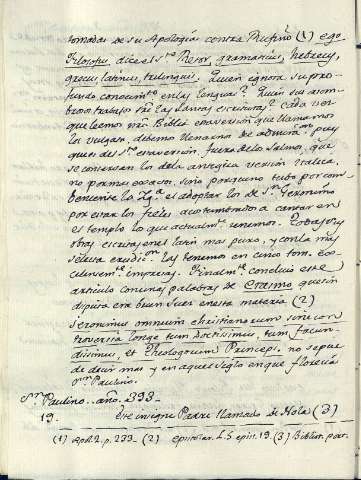 tomadas de su Apologia contra Rufino (1) ego
Filosofus, dice el Sto Retor, gramaticus, hebreus,
grecus, latinus, trilinguis. Quien ignora su pro-
fundo conocimto en las lenguas? Quien su asom-
broso trabajo sre las Santas escrituras? Cada vez
que leemos nra. Biblia en la version que llamamos
la vulgata, debemos llenarnos de admiron, pues
que es del Sto esta version, fuera de los Salmos, que
se conservan los de la antigua version Italica,
no por mas exactos, sino porque no tubo por con-
beniente la Yga. el adoptar los de Sn. Geronimo
por estar los fieles acostumbrados a cantar en
el templo los que actualmte. tenemos. Trabajos y
obras escritas en el latin mas puro, y con la mas
selecta erudicion las tenemos en cinco tom.
excelentemte. impresas. Finalmte. concluio este
articulo con unas palabras de Erasmo quien sin
disputa era buen Juez en esta materia (2)
Ieronimus omnium christianorum sine con
troversia longe tum doctissimus, tum facun-
dissimus, et Theologorum Princeps. no se pue
de decir mas y en aquel siglo en que florecia
Sn. Paulino.
Sn. Paulino.. año.. 393 -
19. Este insigne Padre llamado de Nola (3)
(1) Apol. 2. p. 233 - (2) epistolar. L. 5 epist. 19. (3) Bibliot. pat.